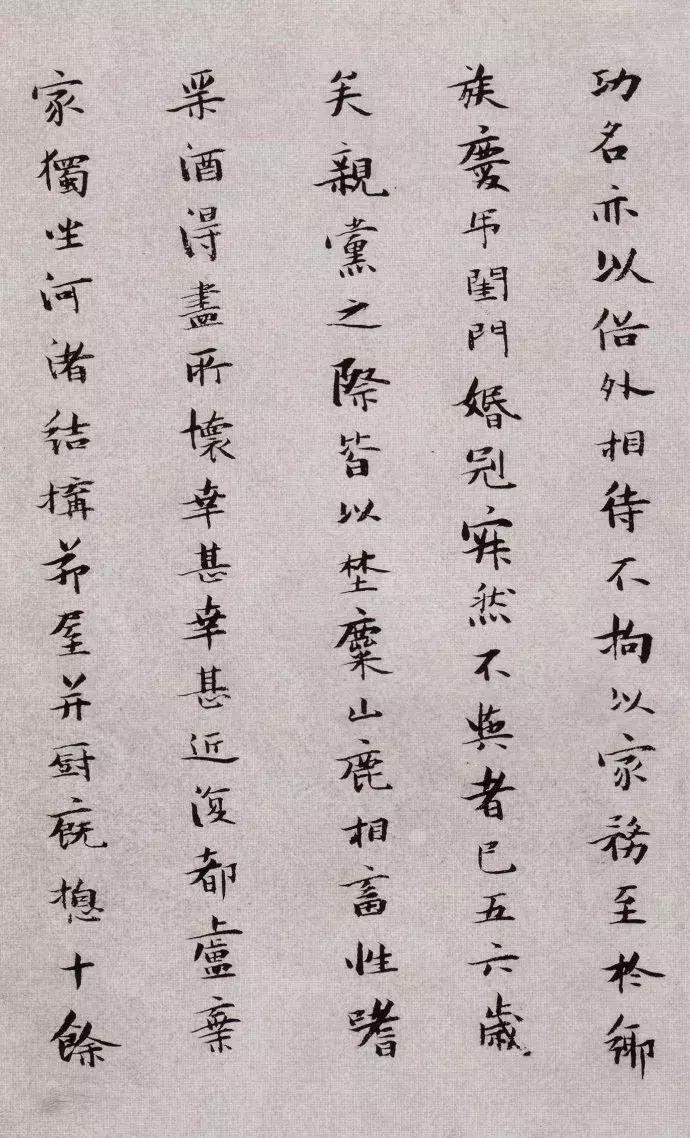 功名亦以俗外相待不拘以家務至於鄉
族慶弔閨門婚冠寂然不與者已五六歲
矣親黨之際皆以埜麋山鹿相畜性嗜
酒得盡所懷幸甚幸甚近復都盧棄
家獨坐河渚結構茆屋并厨廐揔十餘